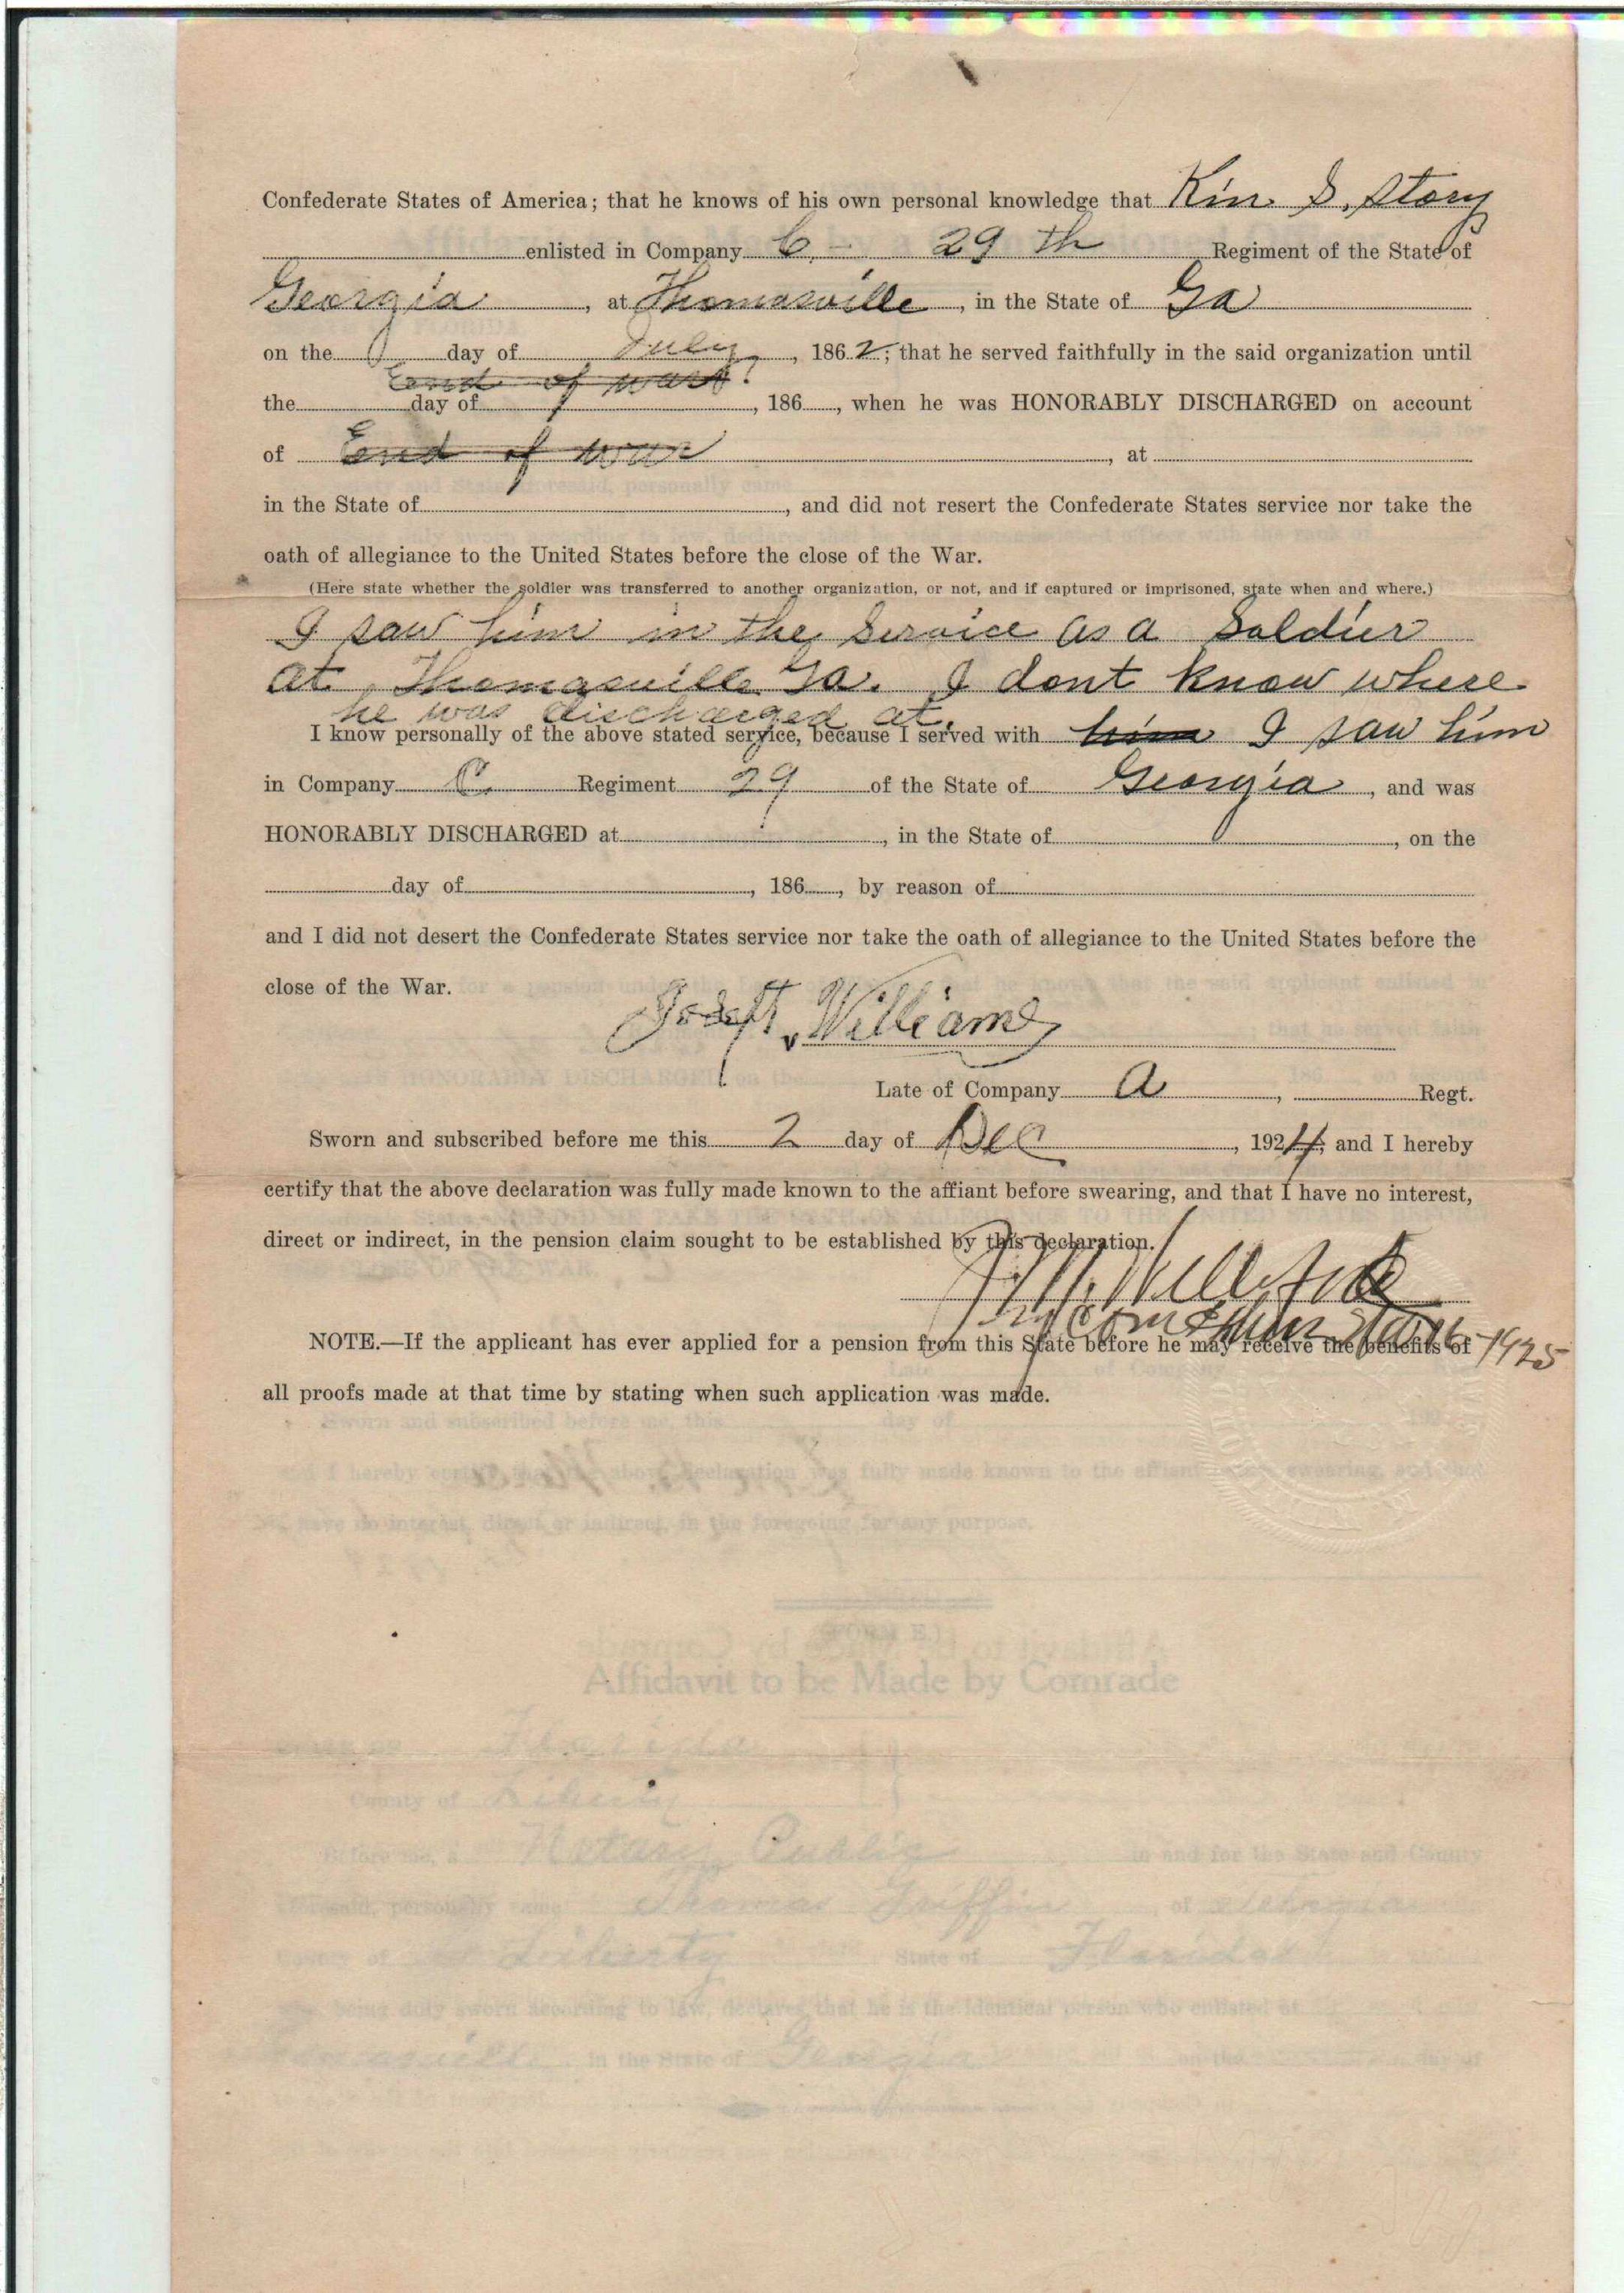 Confederate States of America; that he knows of his own personal knowledge that Kin. S. Story
enlisted in Company C. – 29 th Regiment of the State of
Georgia, at Thomasville, in the State of Ga
on the day of July, 1862; that he served faithfully in the said organization until
End of war.
the day of, 186, when he was HONORABLY DISCHARGED on account
of End of war, at
in the State of, and did not resert the Confederate States service nor take the
oath of allegiance to the United States before the close of the War.
(Here state whether the soldier was transferred to another organization, or not, and if captured or imprisoned, state when and where.)
I saw him in the Service as a Soldier
at Thomasville Ga. I dont know where
he was discharged at.
I know personally of the above stated service, because I served with him I saw him
in Company C. Regiment 29 of the State of Georgia, and was
HONORABLY DISCHARGED at, in the State of, on the
day of, 186, by reason of
and I did not desert the Confederate States service nor take the oath of allegiance to the United States before the
close of the War.
Williams
Late of Company A, Regt.
Sworn and subscribed before me this 2 day of Dec, 1924; and I hereby
certify that the above declaration was fully made known to the affiant before swearing, and that I have no interest,
direct or indirect, in the pension claim sought to be established by this declaration.
My Com 1925
NOTE.—If the applicant has ever applied for a pension from this State before he may receive the benefits of
all proofs made at that time by stating when such application was made.
Affidavit to be Made by Comrade